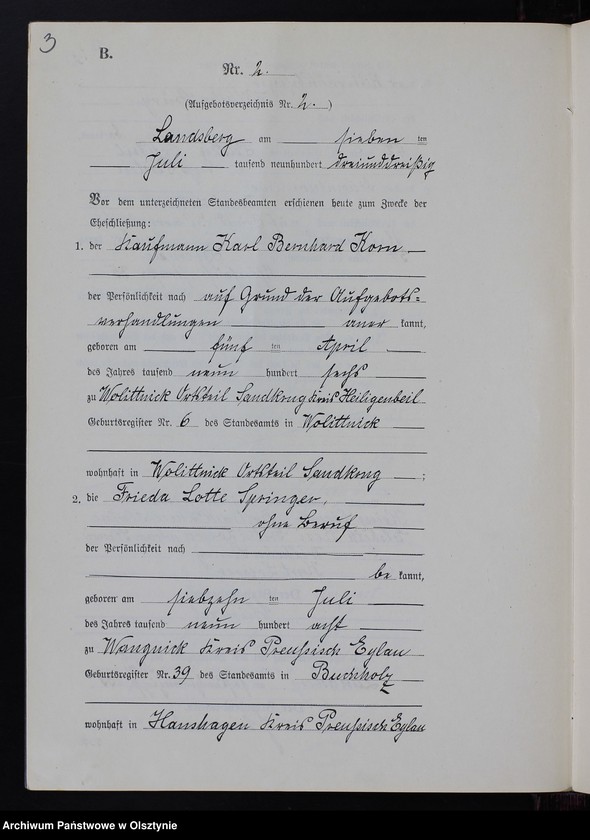 3
B.
Nr. 2.
(Aufgebotsverzeichnis Nr. 2.)
Landsberg am sieben ten
Juli tausend neunhundert dreiunddreißig
Vor dem unterzeichneten Standesbeamten erschienen heute zum Zwecke der
Eheschließung:
1. der Kaufmann Karl Bernhard Korn
der Persönlichkeit nach auf Grund der Aufgebots=
verhandlungen aner kannt,
geboren am fünf ten April
des Jahres tausend neun hundert sechs
zu Wolittnick Ortsteil Sandkrug Kreis Heiligenbeil
Geburtsregister Nr. 6 des Standesamts in Wolittnick
wohnhaft in Wolittnick Ortsteil Sandkrug ;
2. die Frieda Lotte Springer,
ohne Beruf
der Persönlichkeit nach
be kannt,
geboren am siebzehn ten Juli
des Jahres tausend neun hundert acht
zu Wangnick Kreis Preußisch Eylau
Geburtsregister Nr. 39 des Standesamts in Buchholz
wohnhaft in Hanshagen Kreis Preußisch Eylau
Archiwum Państwowe w Olsztynie